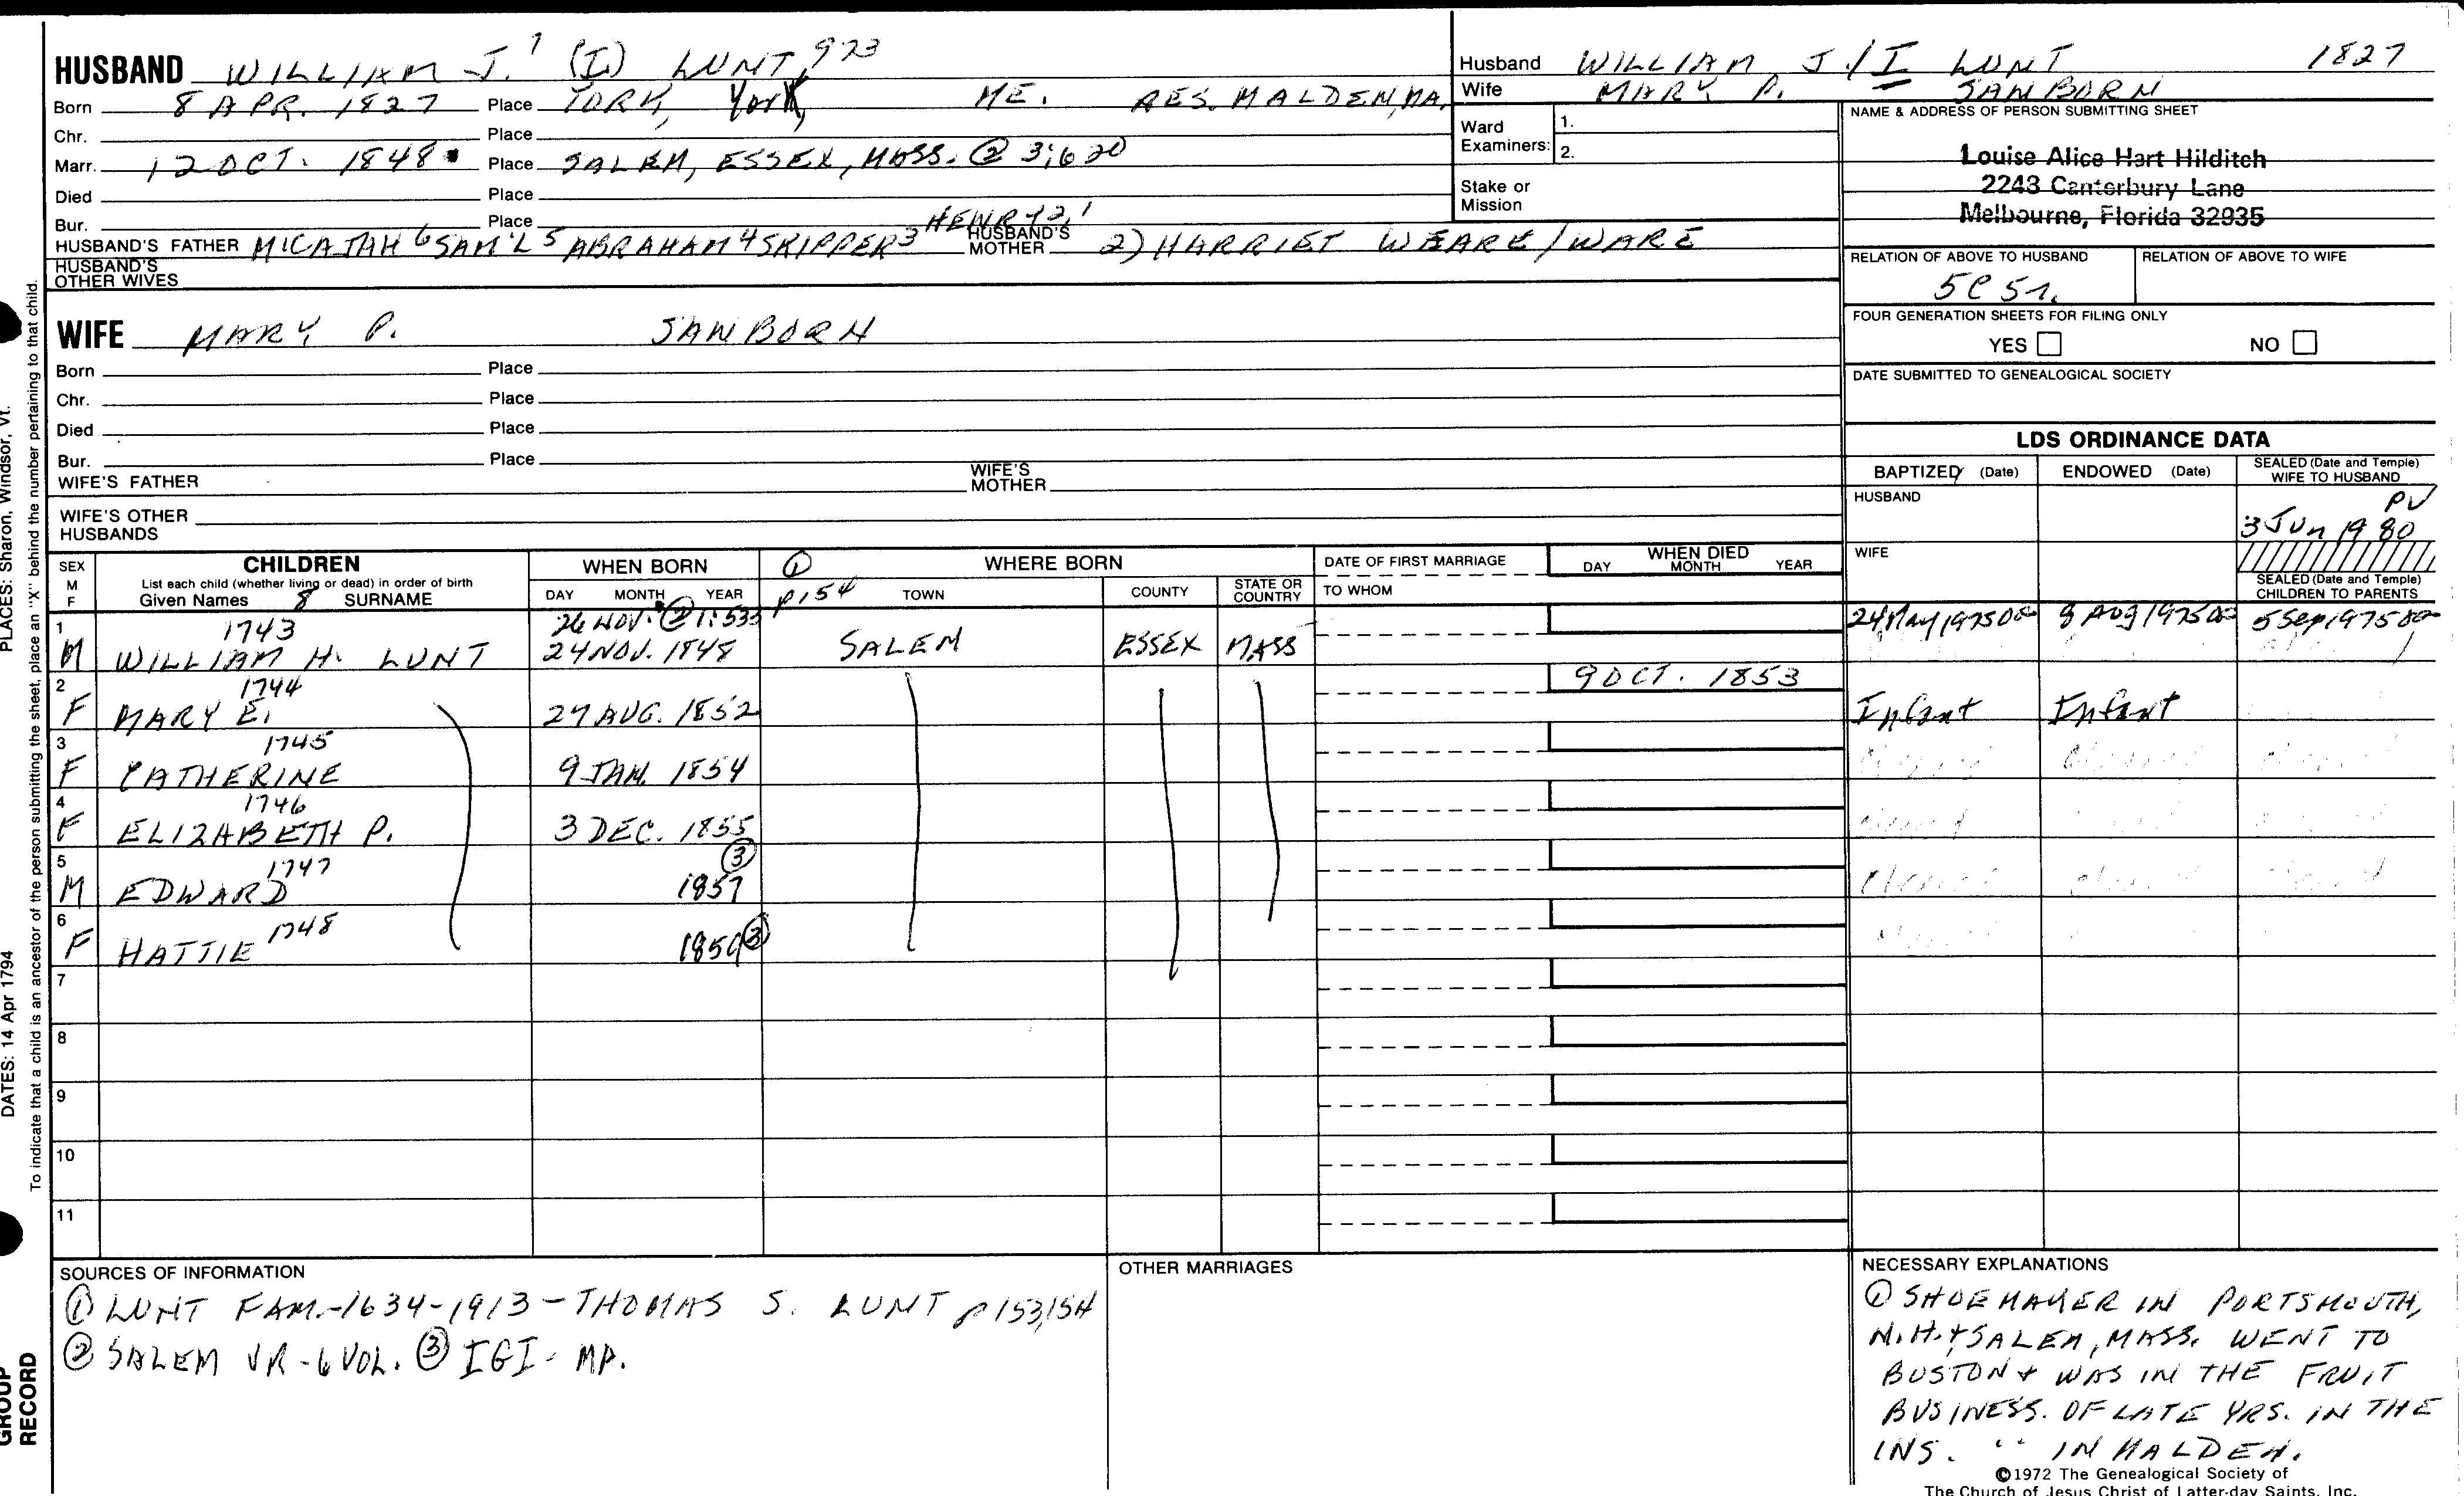 HUSBAND WILLIAM J.7 (I) LUNT, 973
Born 8 APR. 1827 Place YORK, York, ME. RES. MALDEN, MA.
Chr. Place
Marr. 12 OCT. 1848 Place SALEM, ESSEX, MASS. ② 3:620
Died Place
Bur. Place
HUSBAND'S FATHER MICAJAH 6 SAM'L 5 ABRAHAM 4 SKIPPER 3 HENRY 2,1 HUSBAND'S MOTHER 2) HARRIET WEARE/WARE
HUSBAND'S OTHER WIVES
Husband WILLIAM J./I LUNT 1827
Wife MARY P. SANBORN
Ward Examiners: 1.
2.
Stake or Mission
NAME & ADDRESS OF PERSON SUBMITTING SHEET
Louise Alice Hart Hilditch
2243 Canterbury Lane
Melbourne, Florida 32935
RELATION OF ABOVE TO HUSBAND RELATION OF ABOVE TO WIFE
5C 5r.
FOUR GENERATION SHEETS FOR FILING ONLY
YES NO
DATE SUBMITTED TO GENEALOGICAL SOCIETY
WIFE MARY P. SANBORN
Born Place
Chr. Place
Died Place
Bur. Place
WIFE'S FATHER WIFE'S MOTHER
WIFE'S OTHER HUSBANDS
LDS ORDINANCE DATA
BAPTIZED (Date) ENDOWED (Date) SEALED (Date and Temple) WIFE TO HUSBAND
HUSBAND PV
3 Jun 1980
WIFE
SEALED (Date and Temple) CHILDREN TO PARENTS
SEX M F
CHILDREN
List each child (whether living or dead) in order of birth
Given Names 8 SURNAME
WHEN BORN
DAY MONTH YEAR
① P154
WHERE BORN
TOWN COUNTY STATE OR COUNTRY
DATE OF FIRST MARRIAGE
TO WHOM
WHEN DIED
DAY MONTH YEAR
1 1743 26 NOV. ② 1:533 24 May 1975 8 Aug 1975 5 Sep 1975
M WILLIAM H. LUNT 24 NOV. 1848 SALEM ESSEX MASS
2 1744 9 OCT. 1853
F MARY E. 27 AUG. 1852 Infant Infant
3 1745
F CATHERINE 9 JAN. 1854
4 1746
F ELIZABETH P. 3 DEC. 1855
5 1747 ③
M EDWARD 1857
6 1748
F HATTIE 1859 ③
7
8
9
10
11
SOURCES OF INFORMATION
① LUNT FAM.-1634-1913-THOMAS S. LUNT p 153,154
② SALEM VR-6 VOL. ③ IGI- MA.
OTHER MARRIAGES
NECESSARY EXPLANATIONS
① SHOEMAKER IN PORTSMOUTH,
N.H. + SALEM, MASS. WENT TO
BOSTON + WAS IN THE FRUIT
BUSINESS. OF LATE YRS. IN THE
INS. " IN MALDEN.
©1972 The Genealogical Society of
The Church of Jesus Christ of Latter-day Saints, Inc.
PLACES: Sharon, Windsor, Vt.
DATES: 14 Apr 1794
To indicate that a child is an ancestor of the person submitting the sheet, place an "X" behind the number pertaining to that child.
GROUP
RECORD